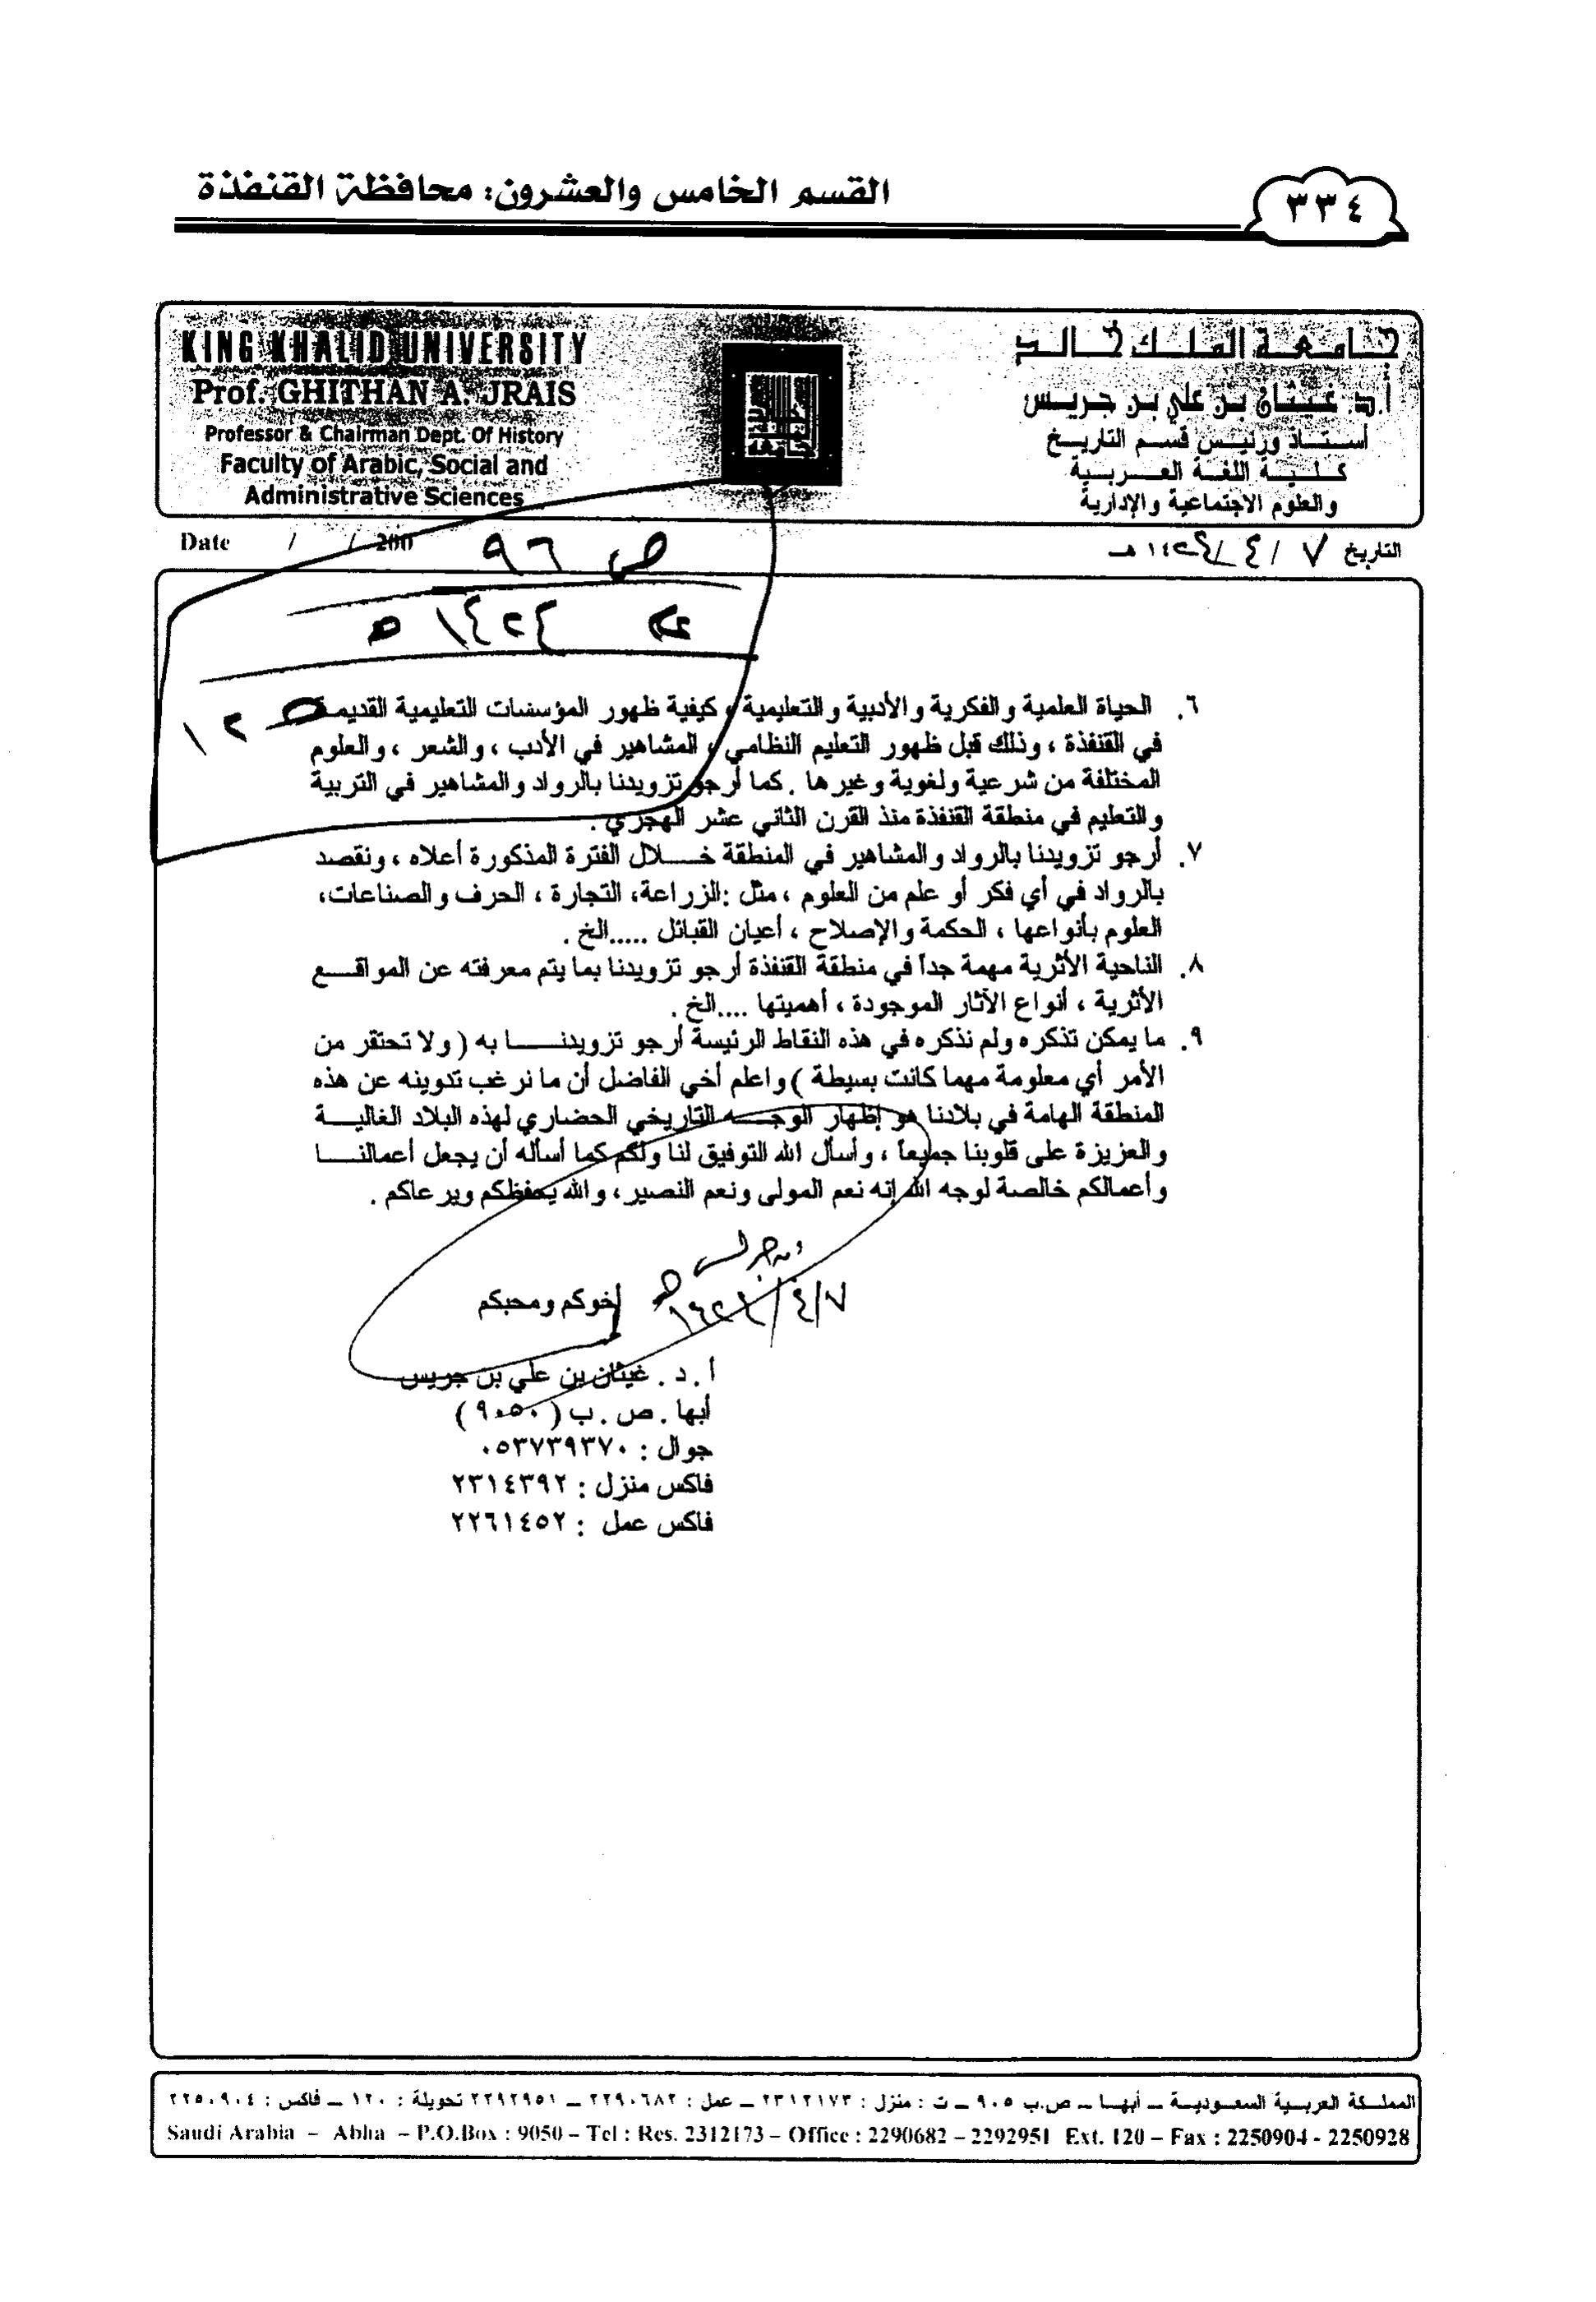 القسم الخامس والعشرون: محافظة القنفذة
٣٣٤
KING KHALID UNIVERSITY
Prof. GHITHAN A. JRAIS
Professor & Chairman Dept. Of History
Faculty of Arabic, Social and
Administrative Sciences
جامعة الملك خالد
أ.د. غيثان بن علي بن جريس
أستاذ ورئيس قسم التاريخ
كلية اللغة العربية
والعلوم الاجتماعية والإدارية
Date / / 200
التاريخ ٧ / ٤ / هـ
ص ٩٦
١٤٢٤ هـ
٦. الحياة العلمية والفكرية والأدبية والتعليمية، كيفية ظهور المؤسسات التعليمية القديمة
في القنفذة ، وذلك قبل ظهور التعليم النظامي ، المشاهير في الأدب ، والشعر ، والعلوم
المختلفة من شرعية ولغوية وغيرها . كما أرجو تزويدنا بالرواد والمشاهير في التربية
والتعليم في منطقة القنفذة منذ القرن الثاني عشر الهجري .
٧. أرجو تزويدنا بالرواد والمشاهير في المنطقة خلال الفترة المذكورة أعلاه ، ونقصد
بالرواد في أي فكر أو علم من العلوم ، مثل :الزراعة، التجارة ، الحرف والصناعات،
العلوم بأنواعها ، الحكمة والإصلاح ، أعيان القبائل .....الخ .
٨. الناحية الأثرية مهمة جداً في منطقة القنفذة أرجو تزويدنا بما يتم معرفته عن المواقع
الأثرية ، أنواع الآثار الموجودة ، أهميتها ....الخ .
٩. ما يمكن تذكره ولم نذكره في هذه النقاط الرئيسة أرجو تزويدنا به ( ولا تحتقر من
الأمر أي معلومة مهما كانت بسيطة ) واعلم أخي الفاضل أن ما نرغب تدوينه عن هذه
المنطقة الهامة في بلادنا هو إظهار الوجه التاريخي الحضاري لهذه البلاد الغالية
والعزيزة على قلوبنا جميعاً ، وأسأل الله التوفيق لنا ولكم كما أسأله أن يجعل أعمالنا
وأعمالكم خالصة لوجه الله إنه نعم المولى ونعم النصير ، والله يحفظكم ويرعاكم .
أخوكم ومحبكم
أ . د . غيثان بن علي بن جريس
أبها . ص . ب ( ٩٠٥٠ )
جوال : ٠٥٣٧٣٩٣٧٠
فاكس منزل : ٢٣١٤٣٩٢
فاكس عمل : ٢٢٦١٤٥٢
المملكة العربية السعودية – أبها – ص.ب ٩٠٥ – ت : منزل : ٢٣١٢١٧٣ – عمل : ٢٢٩٠٦٨٢ – ٢٢٩٢٩٥١ تحويلة : ١٢٠ – فاكس : ٢٢٥٠٩٠٤
Saudi Arabia – Abha – P.O.Box : 9050 – Tel : Res. 2312173 – Office : 2290682 – 2292951 Ext. 120 – Fax : 2250904 - 2250928